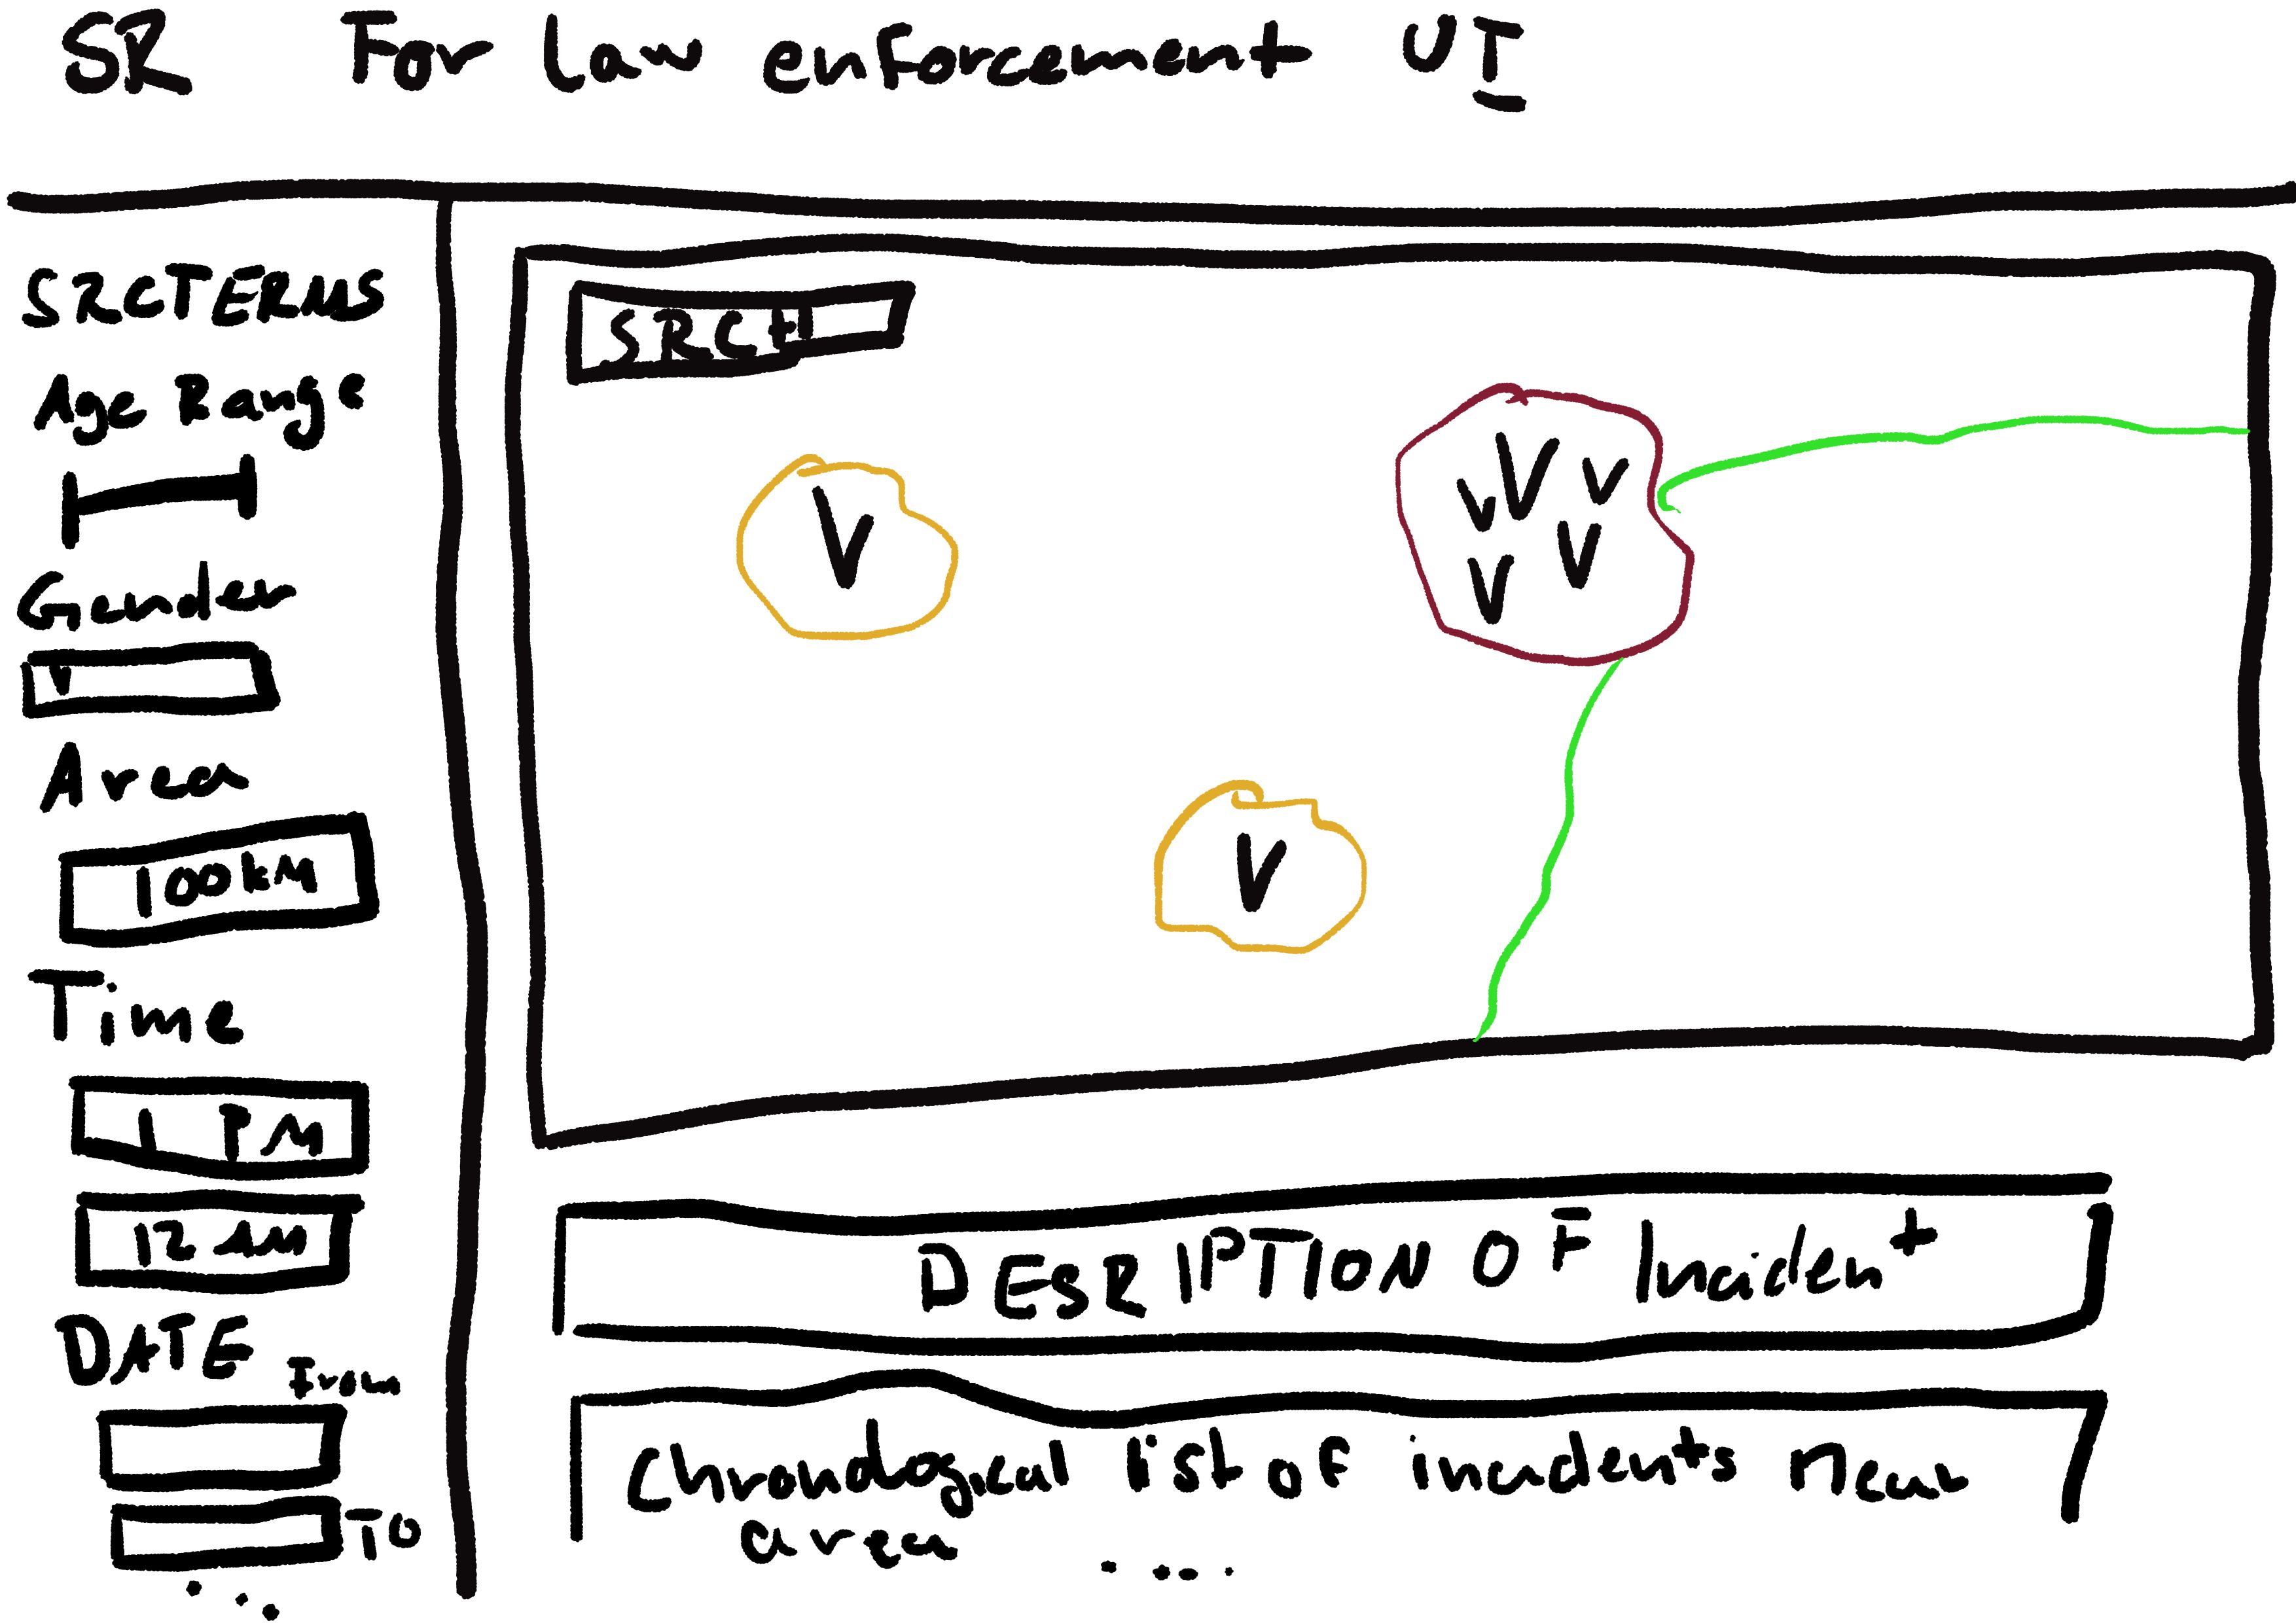 SR For law enforcement UI
SRCTERMS
Age Range
Gender
V
Area
100kM
Time
1 PM
12 AM
DATE From
TO
...
SRCH
V
V V V
V V
V
DESRIPTION OF Incident
Chronological list of incidents near
area ....